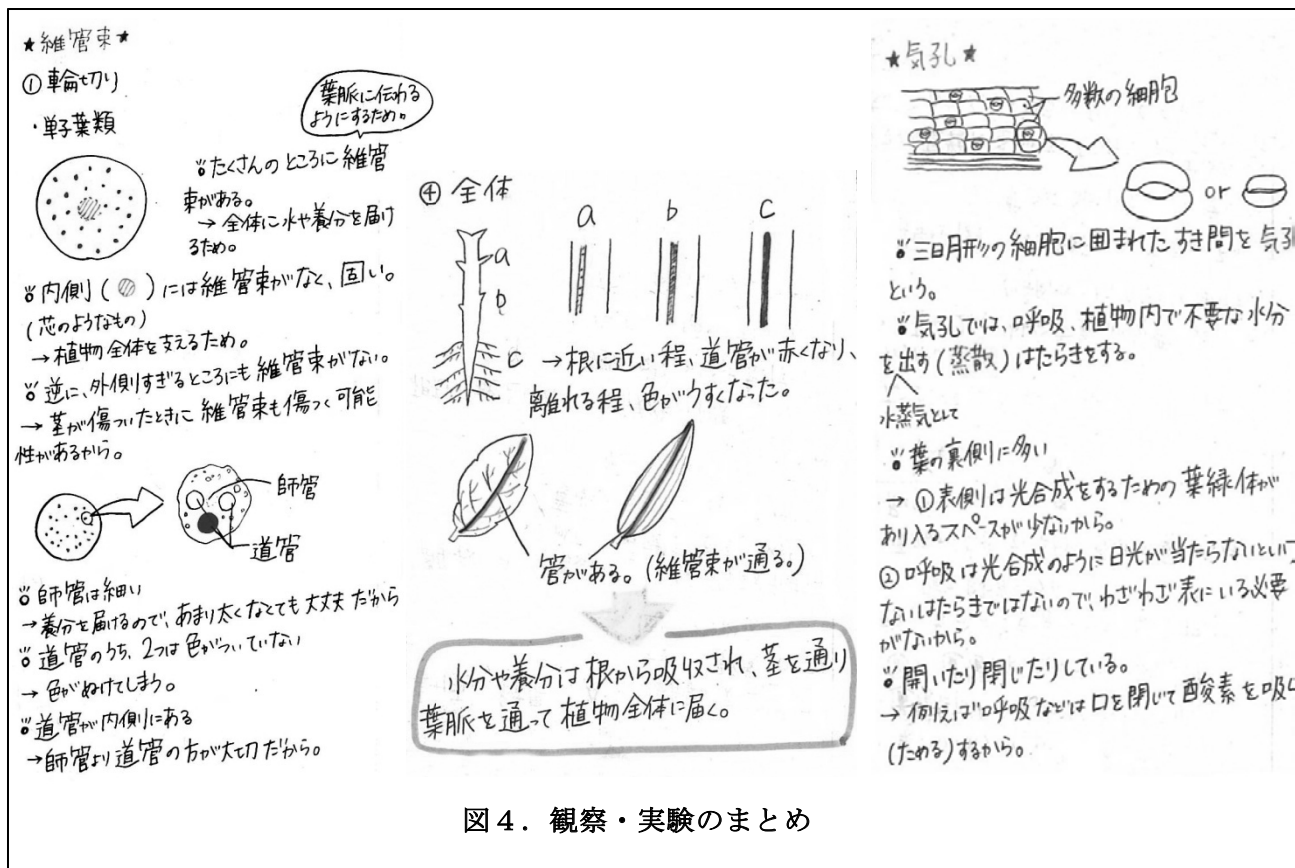 ★維管束★
①輪切り
・単子葉類
葉脈に伝わる
ようにするため。
※たくさんのところに維管
束がある。
→全体に水や養分を届け
るため。
※内側( )には維管束がなく、固い。
(芯のようなもの)
→植物全体を支えるため。
※逆に、外側すぎるところにも維管束がない。
→茎が傷ついたときに維管束も傷つく可能
性があるから。
師管
道管
※師管は細い
→養分を届けるので、あまり太くなくても大丈夫だから
※道管のうち、2つは色がついていない
→色がぬけてしまう。
※道管が内側にある
→師管より道管の方が大切だから。
④全体
a
b
c
a b c
→根に近い程、道管が赤くなり、
離れる程、色がうすくなった。
管がある。(維管束が通る。)
水分や養分は根から吸収され、茎を通り
葉脈を通って植物全体に届く。
★気孔★
多数の細胞
or
※三日月形の細胞に囲まれたすき間を気孔
という。
※気孔では、呼吸、植物内で不要な水分
を出す(蒸散)はたらきをする。
水蒸気として
※葉の裏側に多い
→①表側は光合成をするための葉緑体が
あり入るスペースが少ないから。
②呼吸は光合成のように日光が当たらないといけ
ないはたらきではないので、わざわざ表にいる必要
がないから。
※開いたり閉じたりしている。
→例えば呼吸などは口を閉じて酸素を吸
(ためる)するから。
図4.観察・実験のまとめ